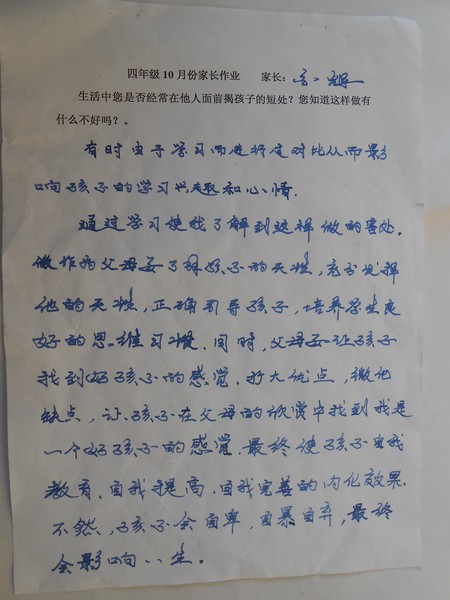 四年级10月份家长作业 家长：
生活中您是否经常在他人面前揭孩子的短处？您知道这样做有
什么不好吗？。
有时由于学习而进行过对比从而影
响孩子的学习兴趣和心情.
通过学习使我了解到这样做的害处.
做作为父母要了解孩子的天性，充分发挥
他的天性，正确引导孩子，培养学生良
好的思维习惯.同时，父母要让孩子
找到好孩子的感觉.扩大优点，微化
缺点，让孩子在父母的欣赏中找到我是
一个好孩子的感觉.最终使孩子自我
教育.自我提高.自我完善的内化效果.
不然，孩子会自卑，自暴自弃，最终
会影响一生。